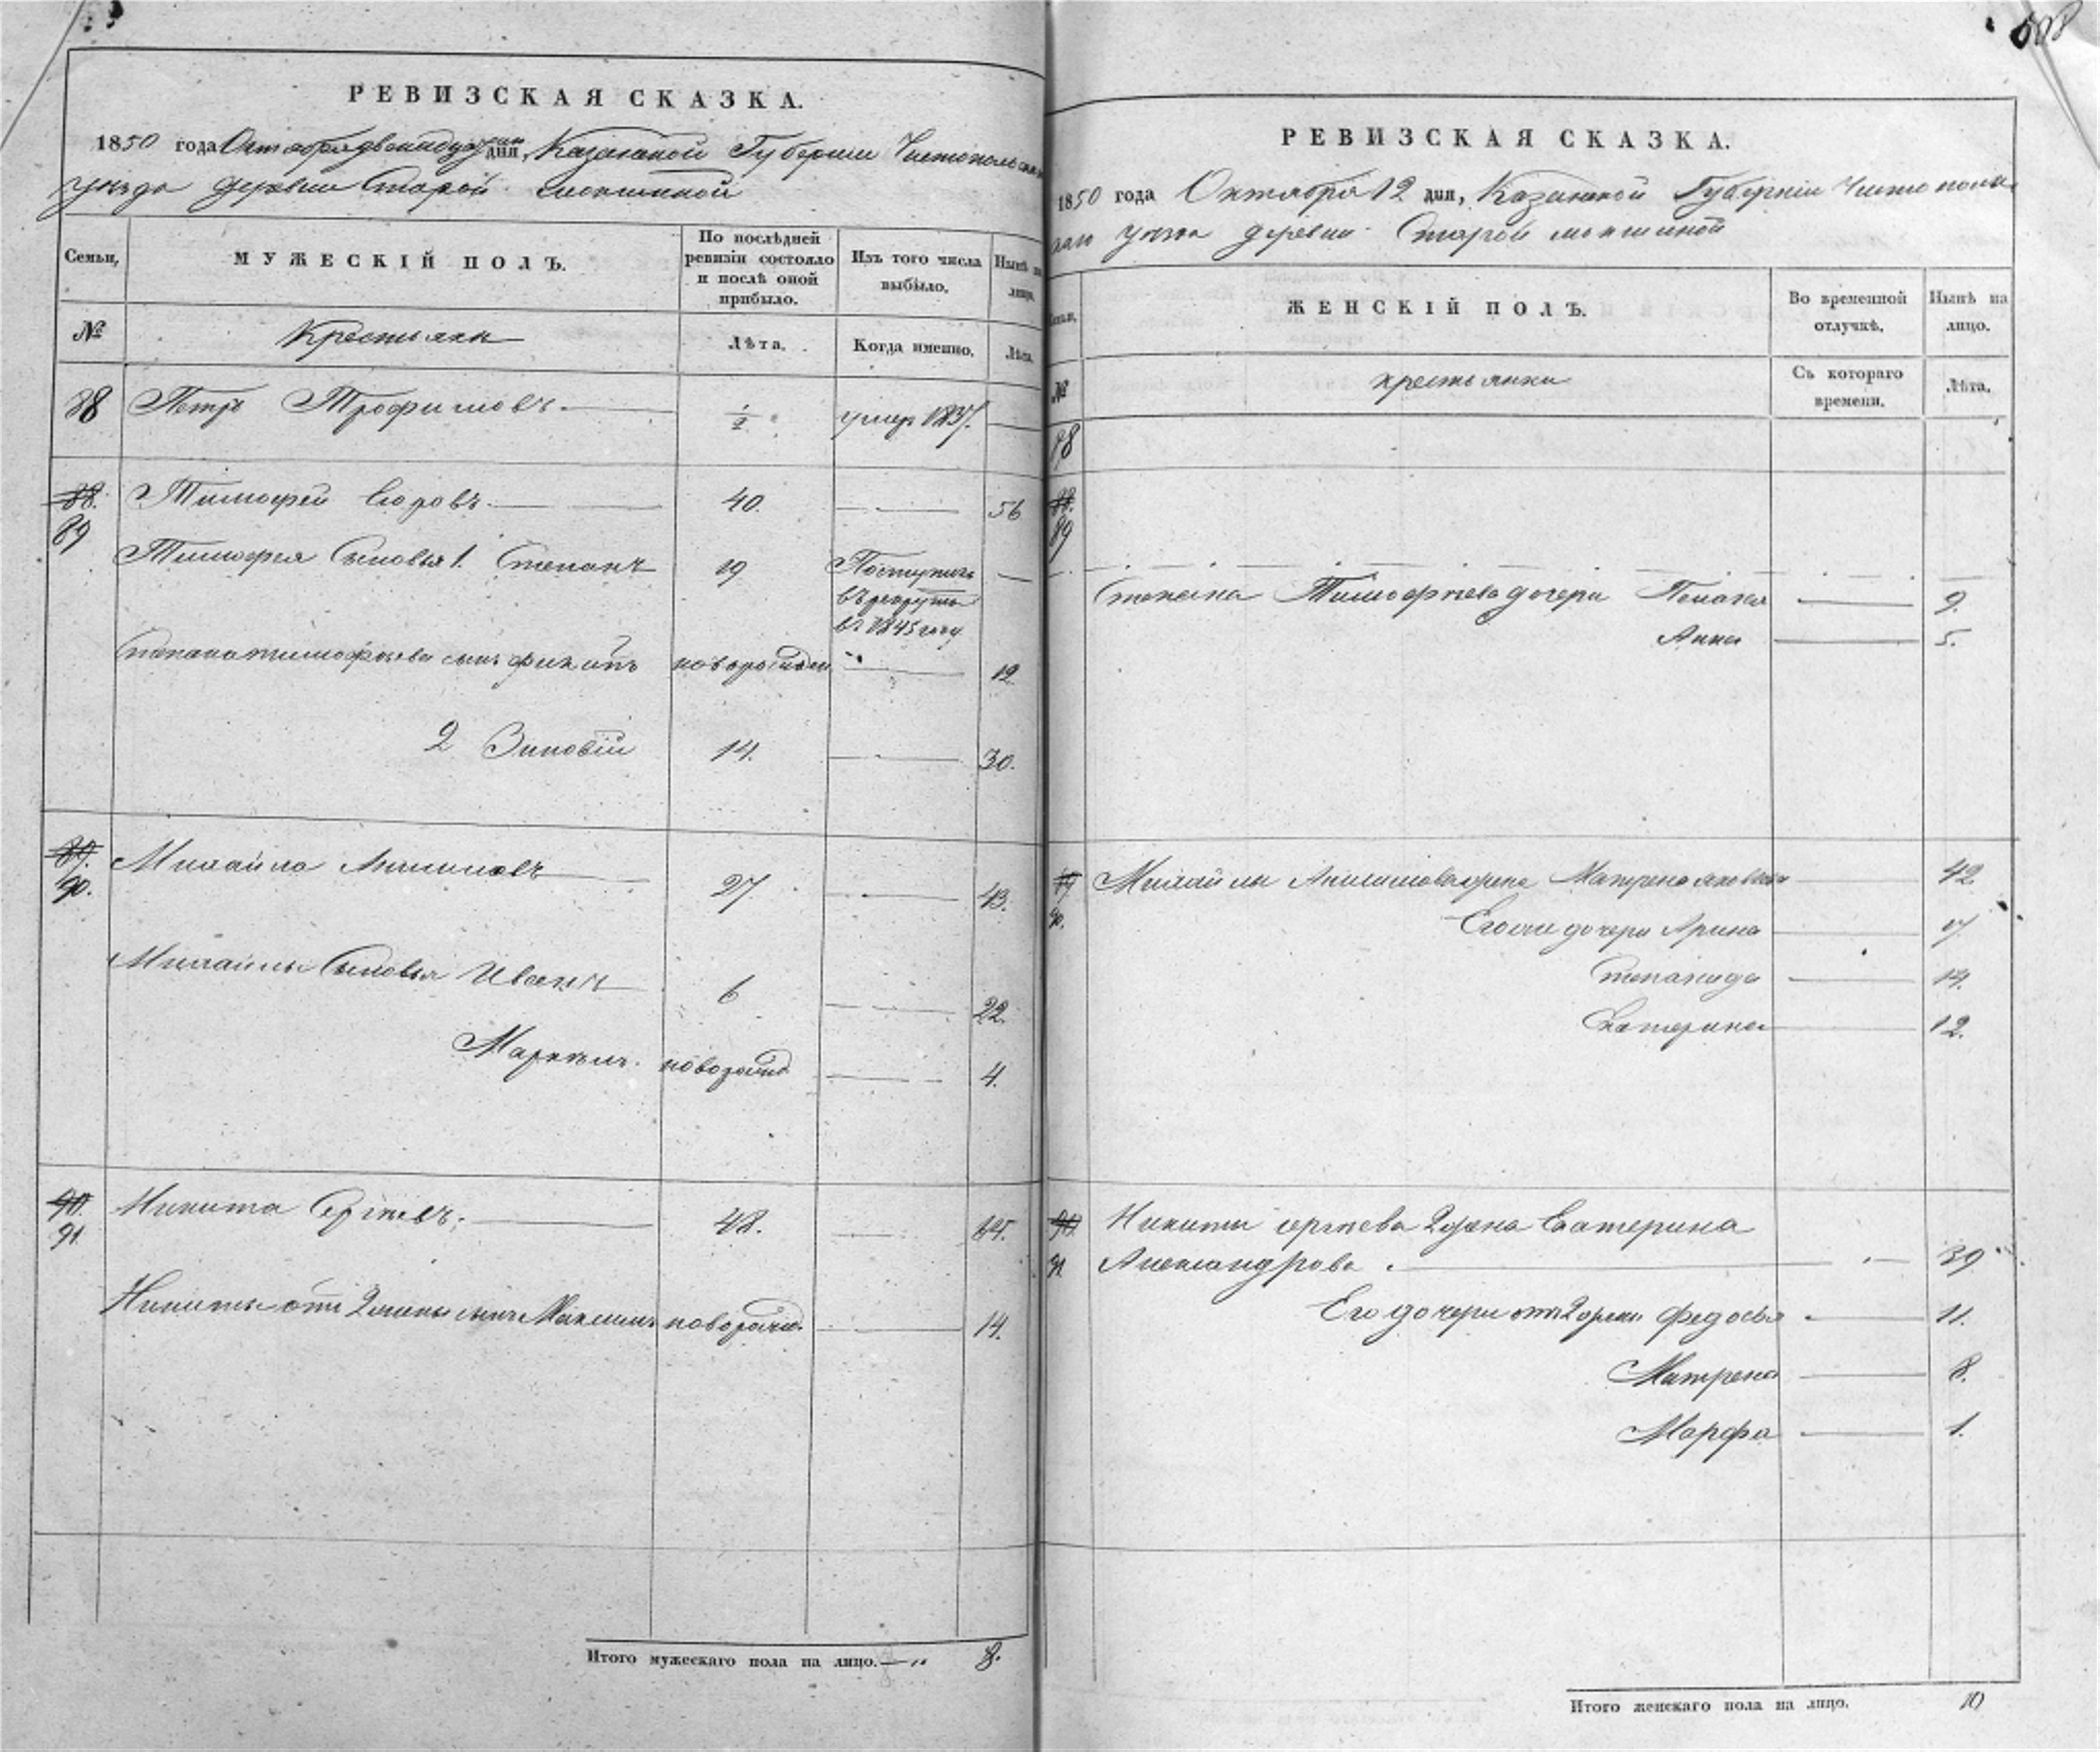 508
РЕВИЗСКАЯ СКАЗКА.
1850 года Октября двенадцат дня, Казанской Губернии Чистопольска
уезда деревни Старой мокшиной
Семьи,
МУЖЕСКІЙ ПОЛЪ.
По послѣдней ревизіи состояло и послѣ оной прибыло.
Изъ того числа выбыло.
Нынѣ на лицо.
№
Крестьяни
Лѣта.
Когда именно.
Лѣта.
88 Петръ Трофимовъ 1/2 умер 1837.
88. Тимофей Егоровъ 40. 56
89
Тимофея Сыновья 1. Степанъ 19 Поступилъ
въ рекруты
въ 1845 году
Степана тимофеева сынъ филипъ новорожден 12
2 Зиновій 14. 30.
89. Михайла Акимовъ 27. 43.
90.
Михайлы Сыновья Иванъ 6 22.
Маркелъ. новорожд 4.
90. Никита Сергѣевъ. 48. 64.
91
Никиты от 2 жены сынъ Максимъ новорожд. 14.
Итого мужескаго пола на лицо. 8.
РЕВИЗСКАЯ СКАЗКА.
1850 года Октября 12 дня, Казанской Губерніи Чистополь
скаго уезда деревни Старой мокшиной
Семьи,
ЖЕНСКІЙ ПОЛЪ.
Во временной отлучкѣ,
Нынѣ на лицо.
№
крестьянки
Съ котораго времени.
Лѣта.
88
88.
89
Степана Тимофеева дочери Пелагея 9.
Анна 5.
89 Михайлы Акимова жена Матрена яковлева 42
90. Его же дочери Арина 17
Степанида 14.
Екатерина 12.
90 Никиты сергеева 2 жена Екатерина
91 Александрова 39
Его дочери от 2 жены Федосья 11.
Матрена 8.
Марфа 1.
Итого женскаго пола на лицо. 10